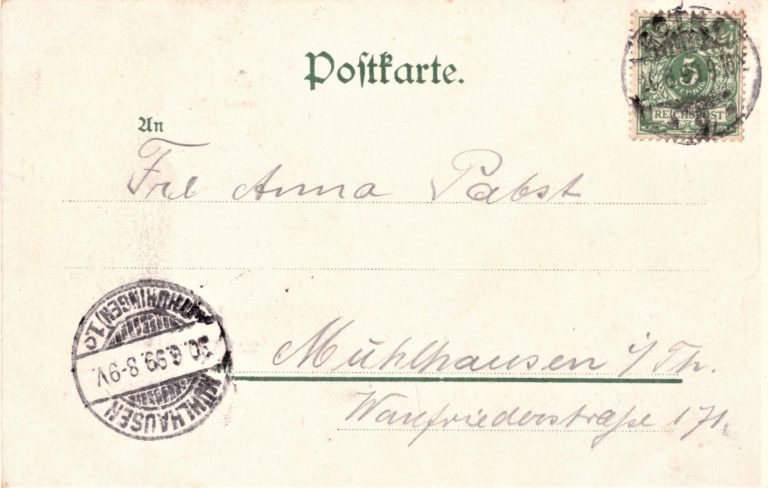 Postkarte.
5
REICHSPOST
An
Frl Anna Pabst
Mühlhausen i/Th.
Wanfriederstraße 171.
MÜHLHAUSEN
30.6.99.8-9V.
(THÜRINGEN) 1c